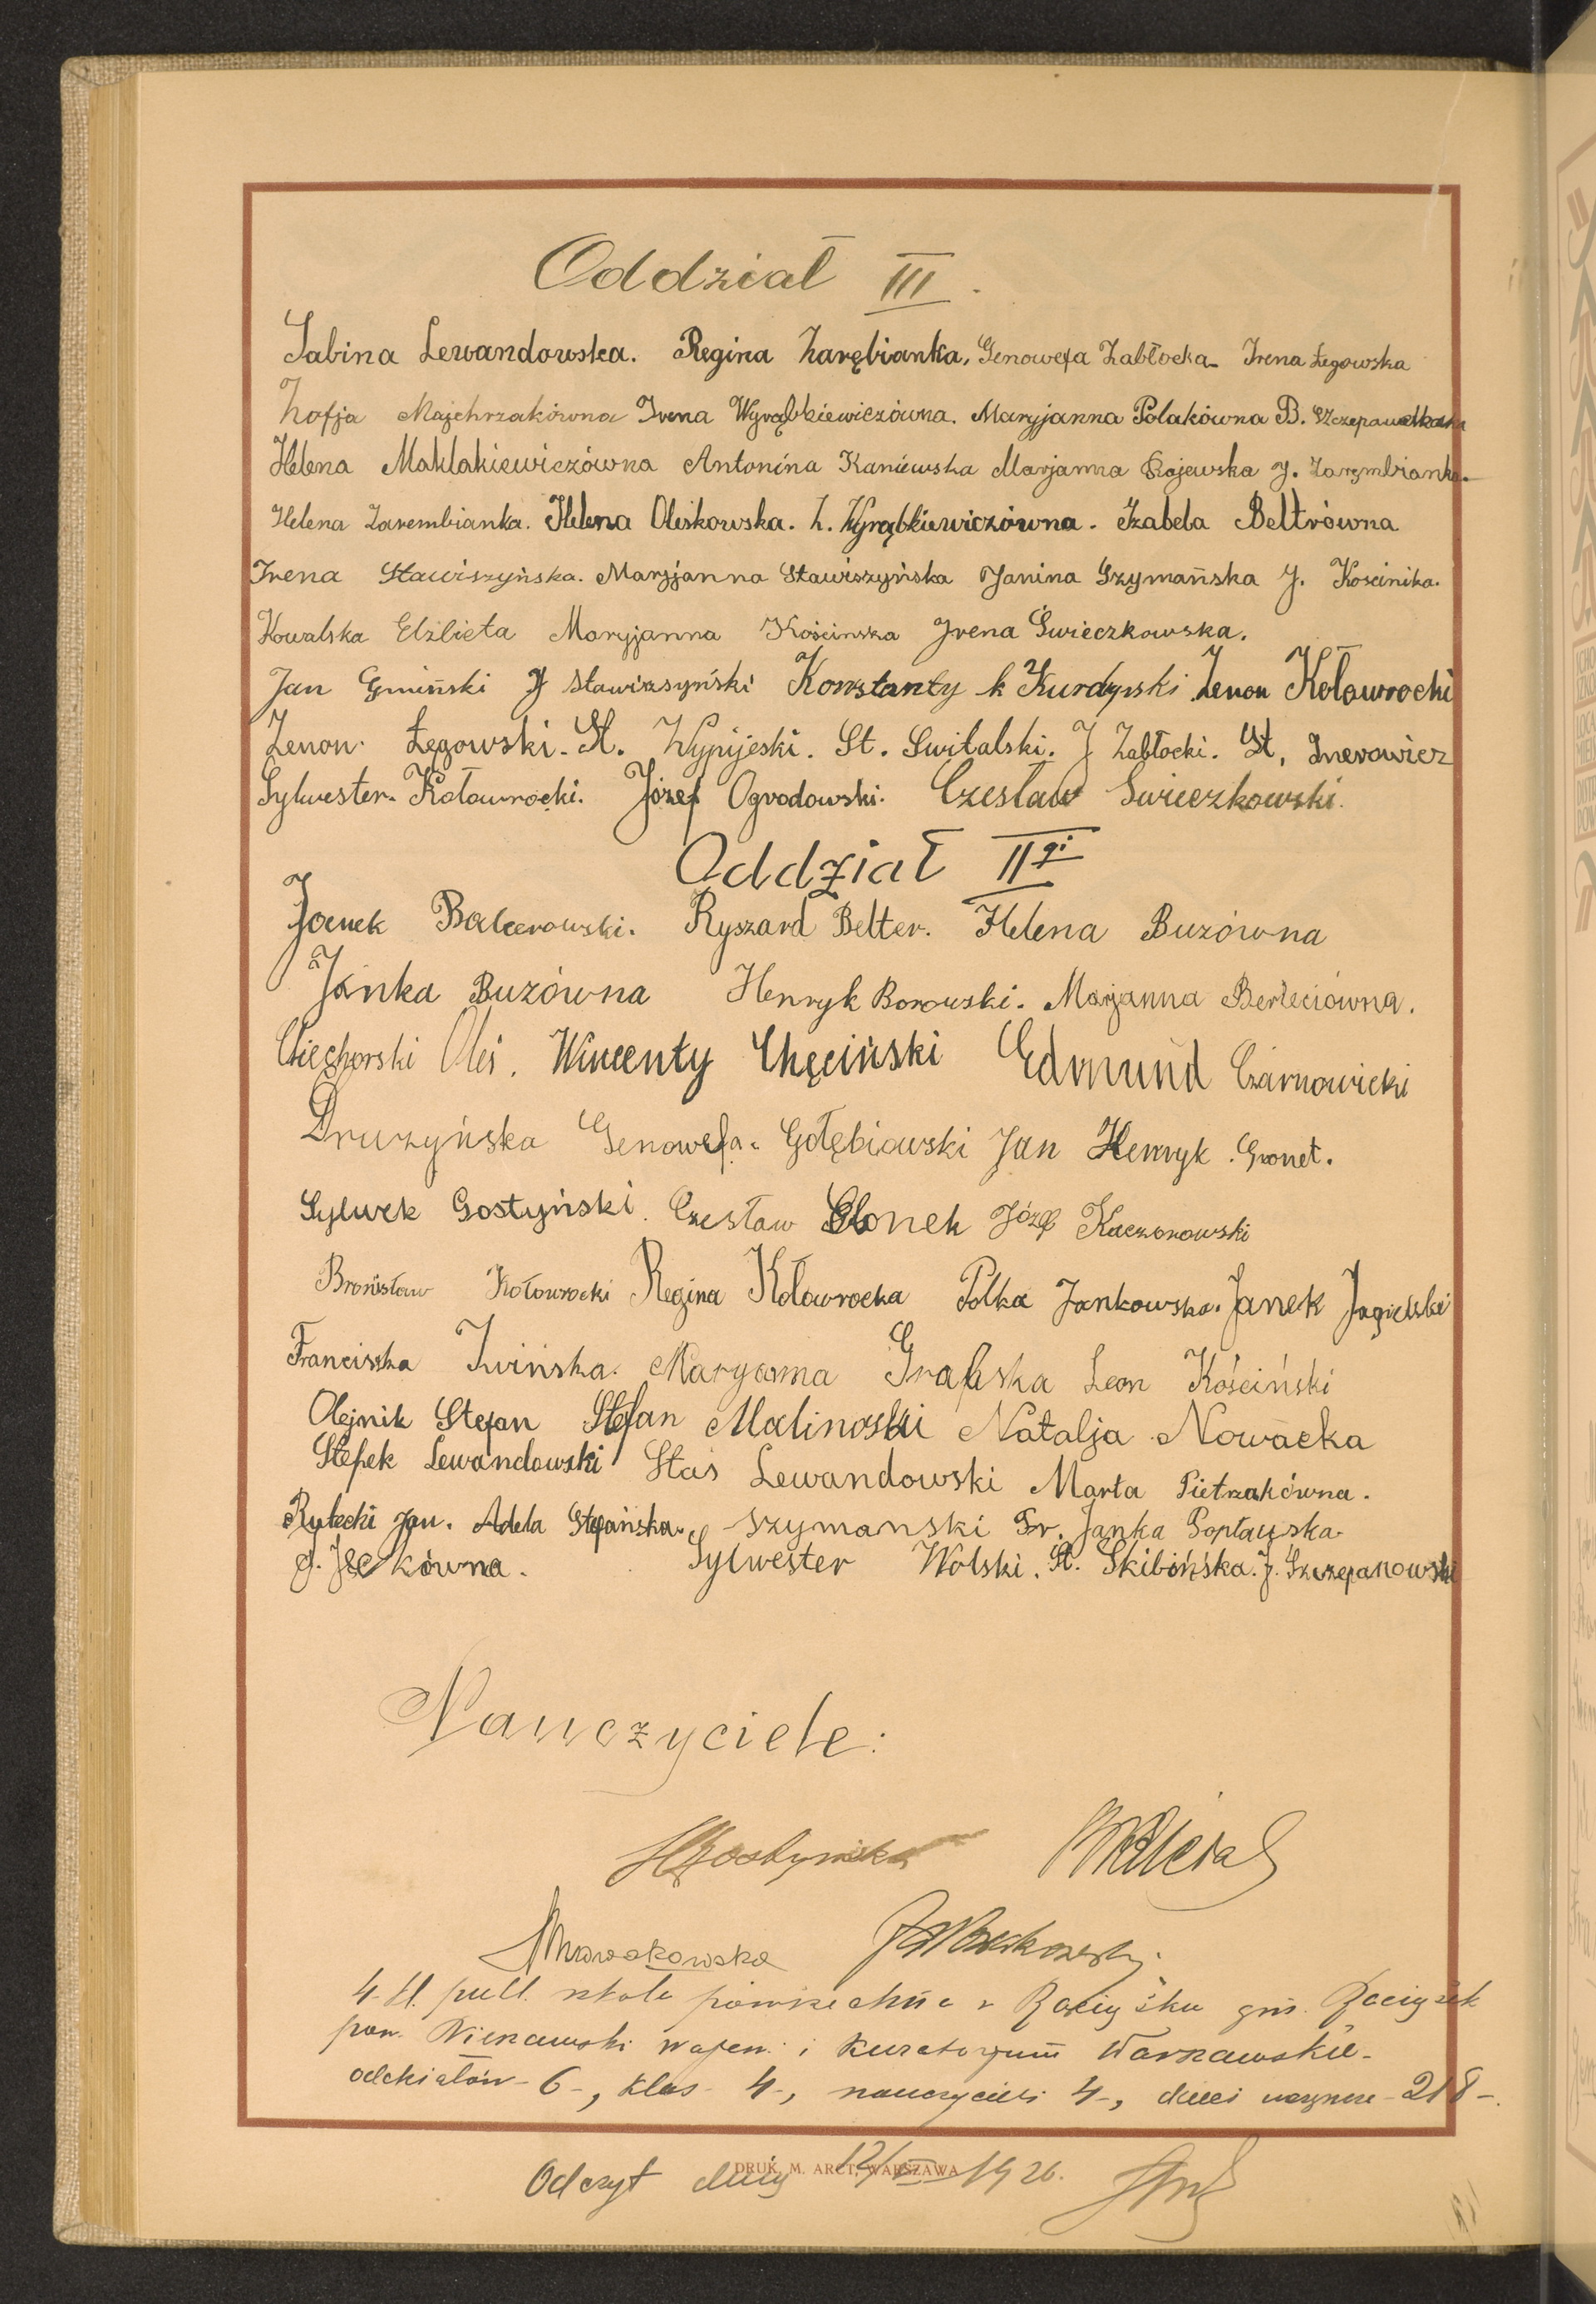 Oddział III.
Sabina Lewandowska. Regina Zarębianka. Genowefa Zabłocka. Irena Łęgowska
Zofja Majchrzakówna Irena Wyrąbkiewiczówna. Maryjanna Polakówna B.
Helena Maklakiewiczówna Antonina Kaniewska Marjanna Gajewska J. Zarembianka.
Helena Zarembianka. Helena Olszkowska. Z. Wyrąbkiewiczówna. Izabela Beltrówna
Irena Stawiszyńska. Maryjanna Stawiszyńska Janina Szymańska J. Kościnika.
Kowalska Elżbieta Maryjanna Kościnska Irena Świeczkowska.
Jan Gmiński J Stawiszyński Konstanty k Kurdyrski Zenon Kołowrocki
Zenon Łęgowski. St. Wypijeski. St. Switalski. J Zabłocki. St. Inerowicz
Sylwester Kołowrocki. Józef Ogrodowski. Czesław Swieczkowski.
Oddział II gi
Janek Balcerowski. Ryszard Belter. Helena Buzówna
Janka Buzówna Henryk Borowski. Marjanna Berleciówna.
Ciechorski Oleś. Wincenty Chęciński Edmund Czarnowicki
Druzyńska Genowefa. Gołębiowski Jan Henryk Gronet.
Sylwek Gostyński. Czesław Glonek Józef Kaczorowski
Bronisław Kołowrocki Regina Kołowrocka Polka Jankowska. Janek Jagielski
Franciszka Iwińska. Maryanna Grabska Leon Kościński
Olejnik Stefan Stefan Malinoski Natalja Nowacka
Stefek Lewandowski Staś Lewandowski Marta Pietrzakówna.
Rutecki Jan. Adela Stefańska. Szymanski Fr. Janka Popławska
J. Sylwester Wolski. St. Skibińska. J. Szczepanowski
Nauczyciele:
4 kl. publ. szkoła powszechna w Raciążku gm. Raciążek
pow. Nieszawski wojew. i Kuratorjum Warszawskie
oddziałów - 6 -, klas - 4 -, nauczycieli 4 -, dzieci 218 -.
Odczyt dnia 12/ 1926.
DRUK. M. ARCT, WARSZAWA